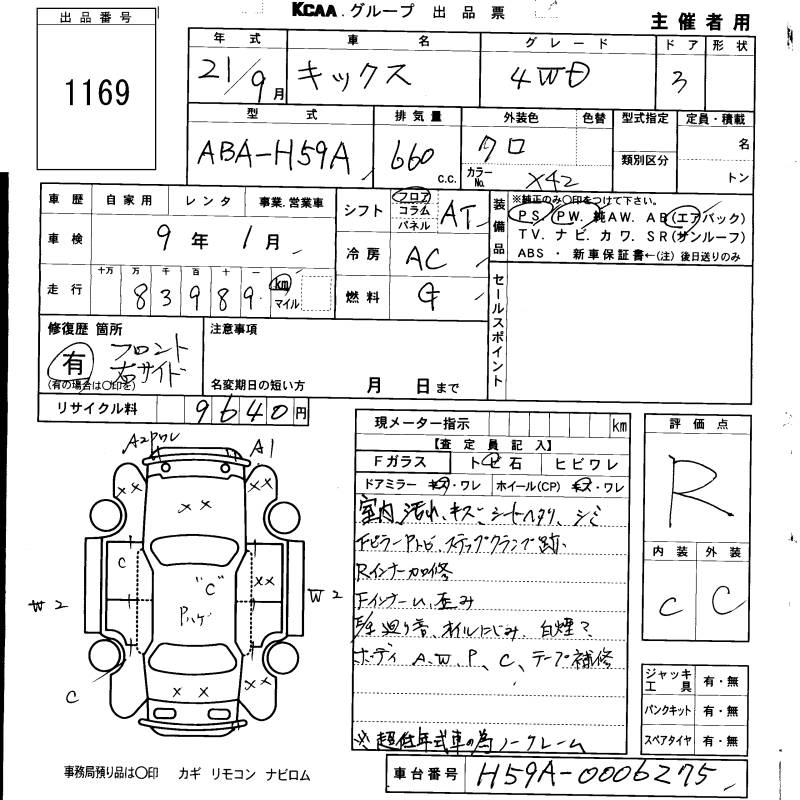 KCAA グループ 出品票
主催者用
出品番号
1169
年式 車名 グレード ドア 形状
21/9月 キックス 4WD 3
型式 排気量 外装色 色替 型式指定 定員・積載
ABA-H59A 660 c.c. クロ カラーNo. X42 類別区分 名 トン
車歴 自家用 レンタ 事業.営業車
車検 9年1月
走行 十万 万 千 百 十 一
83989 km マイル
シフト フロア コラム パネル AT
冷房 AC
燃料 G
装備品
※純正のみ○印をつけて下さい。
PS. PW. 純AW. AB(エアバック)
TV. ナビ. カワ. SR(サンルーフ)
ABS ・ 新車保証書←(注)後日送りのみ
セールスポイント
修復歴 箇所
有 フロント
右サイド
(有の場合は○印を)
注意事項
名変期日の短い方 月 日まで
リサイクル料 9640円
現メーター指示 km
【査定員記入】
Fガラス トビ石 ヒビワレ
ドアミラー キズ・ワレ ホイール(CP) キズ・ワレ
室内 汚れ、キズ、シートヘタリ、シミ
Fピラーアトビ、ステップクランプ跡.
Rインナー加修
Fインナーム、歪み
廻り音、オイルにじみ、白煙
ボーディ A、W、P、C、テープ補修
※超低年式車の為ノークレーム
評価点
R
内装 外装
C C
ジャッキ工具 有・無
パンクキット 有・無
スペアタイヤ 有・無
A2
A1
××
××
××
C
"C"
××
Pハゲ
W2
W2
××
××
C
事務局預り品は○印 カギ リモコン ナビロム
車台番号 H59A-0006275